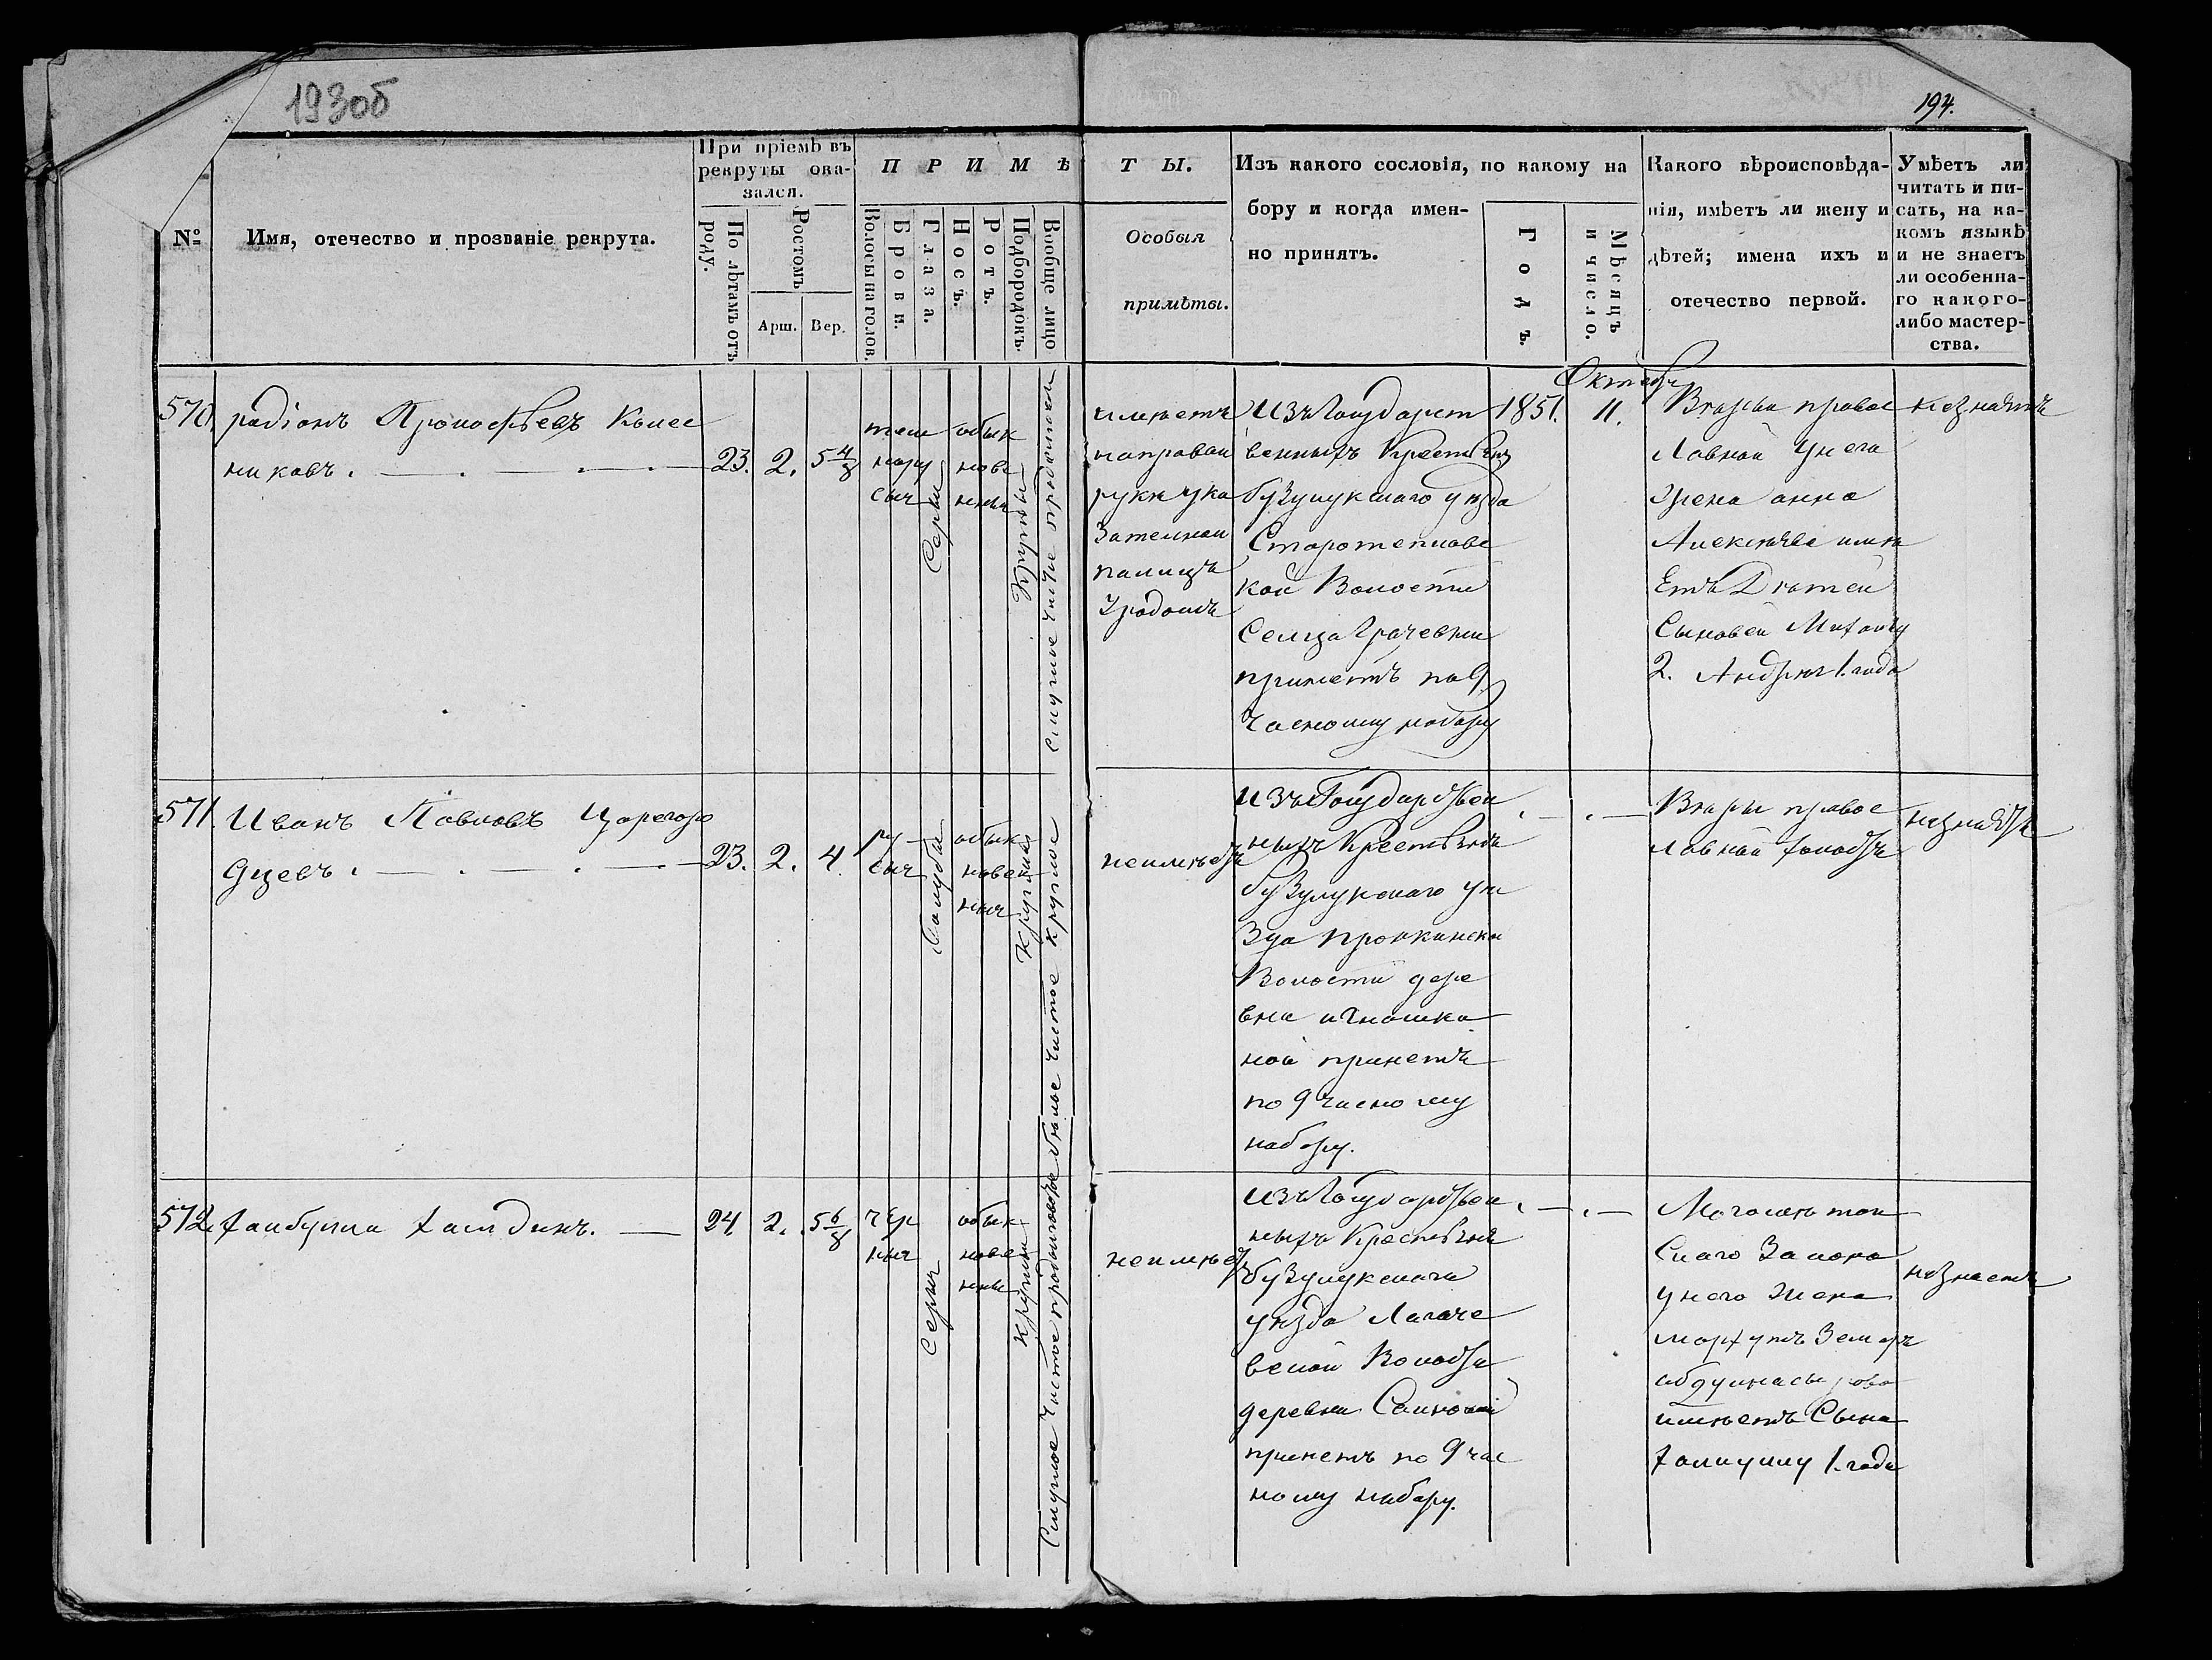 193об
194.
№
Имя, отечество и прозваніе рекрута.
При пріемѣ въ
рекруты ока-
зался.
По лѣтамъ отъ
роду.
Ростомъ
Арш.
Вер.
ПРИМѢ
Волосы на голов.
Брови.
Глаза.
Носъ.
Ротъ.
Подбородокъ.
Вообще лицо
ТЫ.
Особыя
примѣты.
Изъ какого сословія, по какому на
бору и когда имен-
но принятъ.
Годъ.
Мѣсяцъ
и число.
Какого вѣроисповѣда-
нія, имѣетъ ли жену и
дѣтей; имена ихъ и
отечество первой.
Умѣетъ ли
читать и пи-
сать, на ка-
комъ языкѣ
и не знаетъ
ли особенна-
го какого-
либо мастер-
ства.
570.
радіонъ Прокофьевъ Колес
никовъ.
23.
2.
5 4/8
тем
нору
сыя
Серы
обык
нове
нны
Круглы
смуглое чистое продолгова
имѣетъ
направой
руке ука
зательной
палицъ
Уродомъ
Изъ Государст
венныхъ Крестьянъ
бузулукскаго уѣзда
Старотепловс
кой Волости
Сельца Грачевки
принетъ по 9
часному набору
1851.
Октября
11.
Вѣры правос
лавной Унего
Жена анна
Алексѣева имѣ
Етъ Дѣтей
Сыновей
2. Андрея 1. года
незнаетъ
571.
Иванъ Павловъ Царегоро
дцевъ.
23.
2.
4.
ру
сыя
Голубы
обык
новен
ныя
Круглы
белое чистое круглое
неимѣетъ
изъ Государствен
ныхъ Крестьянъ
бузулукскаго уѣ
зда Пронкинско
Волости дере
вне
ной принетъ
по 9 часному
набору.
Вѣры правос
лавной холостъ
незнаетъ
572.
Хамдинъ.
24.
2.
5 6/8
чер
ныя
серыя
обык
новен
ныя
круглы
Смуглое чистое продолговатое
неимѣетъ
изъ Государствен
ныхъ Крестьянъ
бузулукскаго
уѣзда Логаче
вской Волости
деревни
принетъ по 9 час
ному набору.
Магометан
скаго Закона
унего Жена
имѣетъ Сына
1. года
незнаетъ